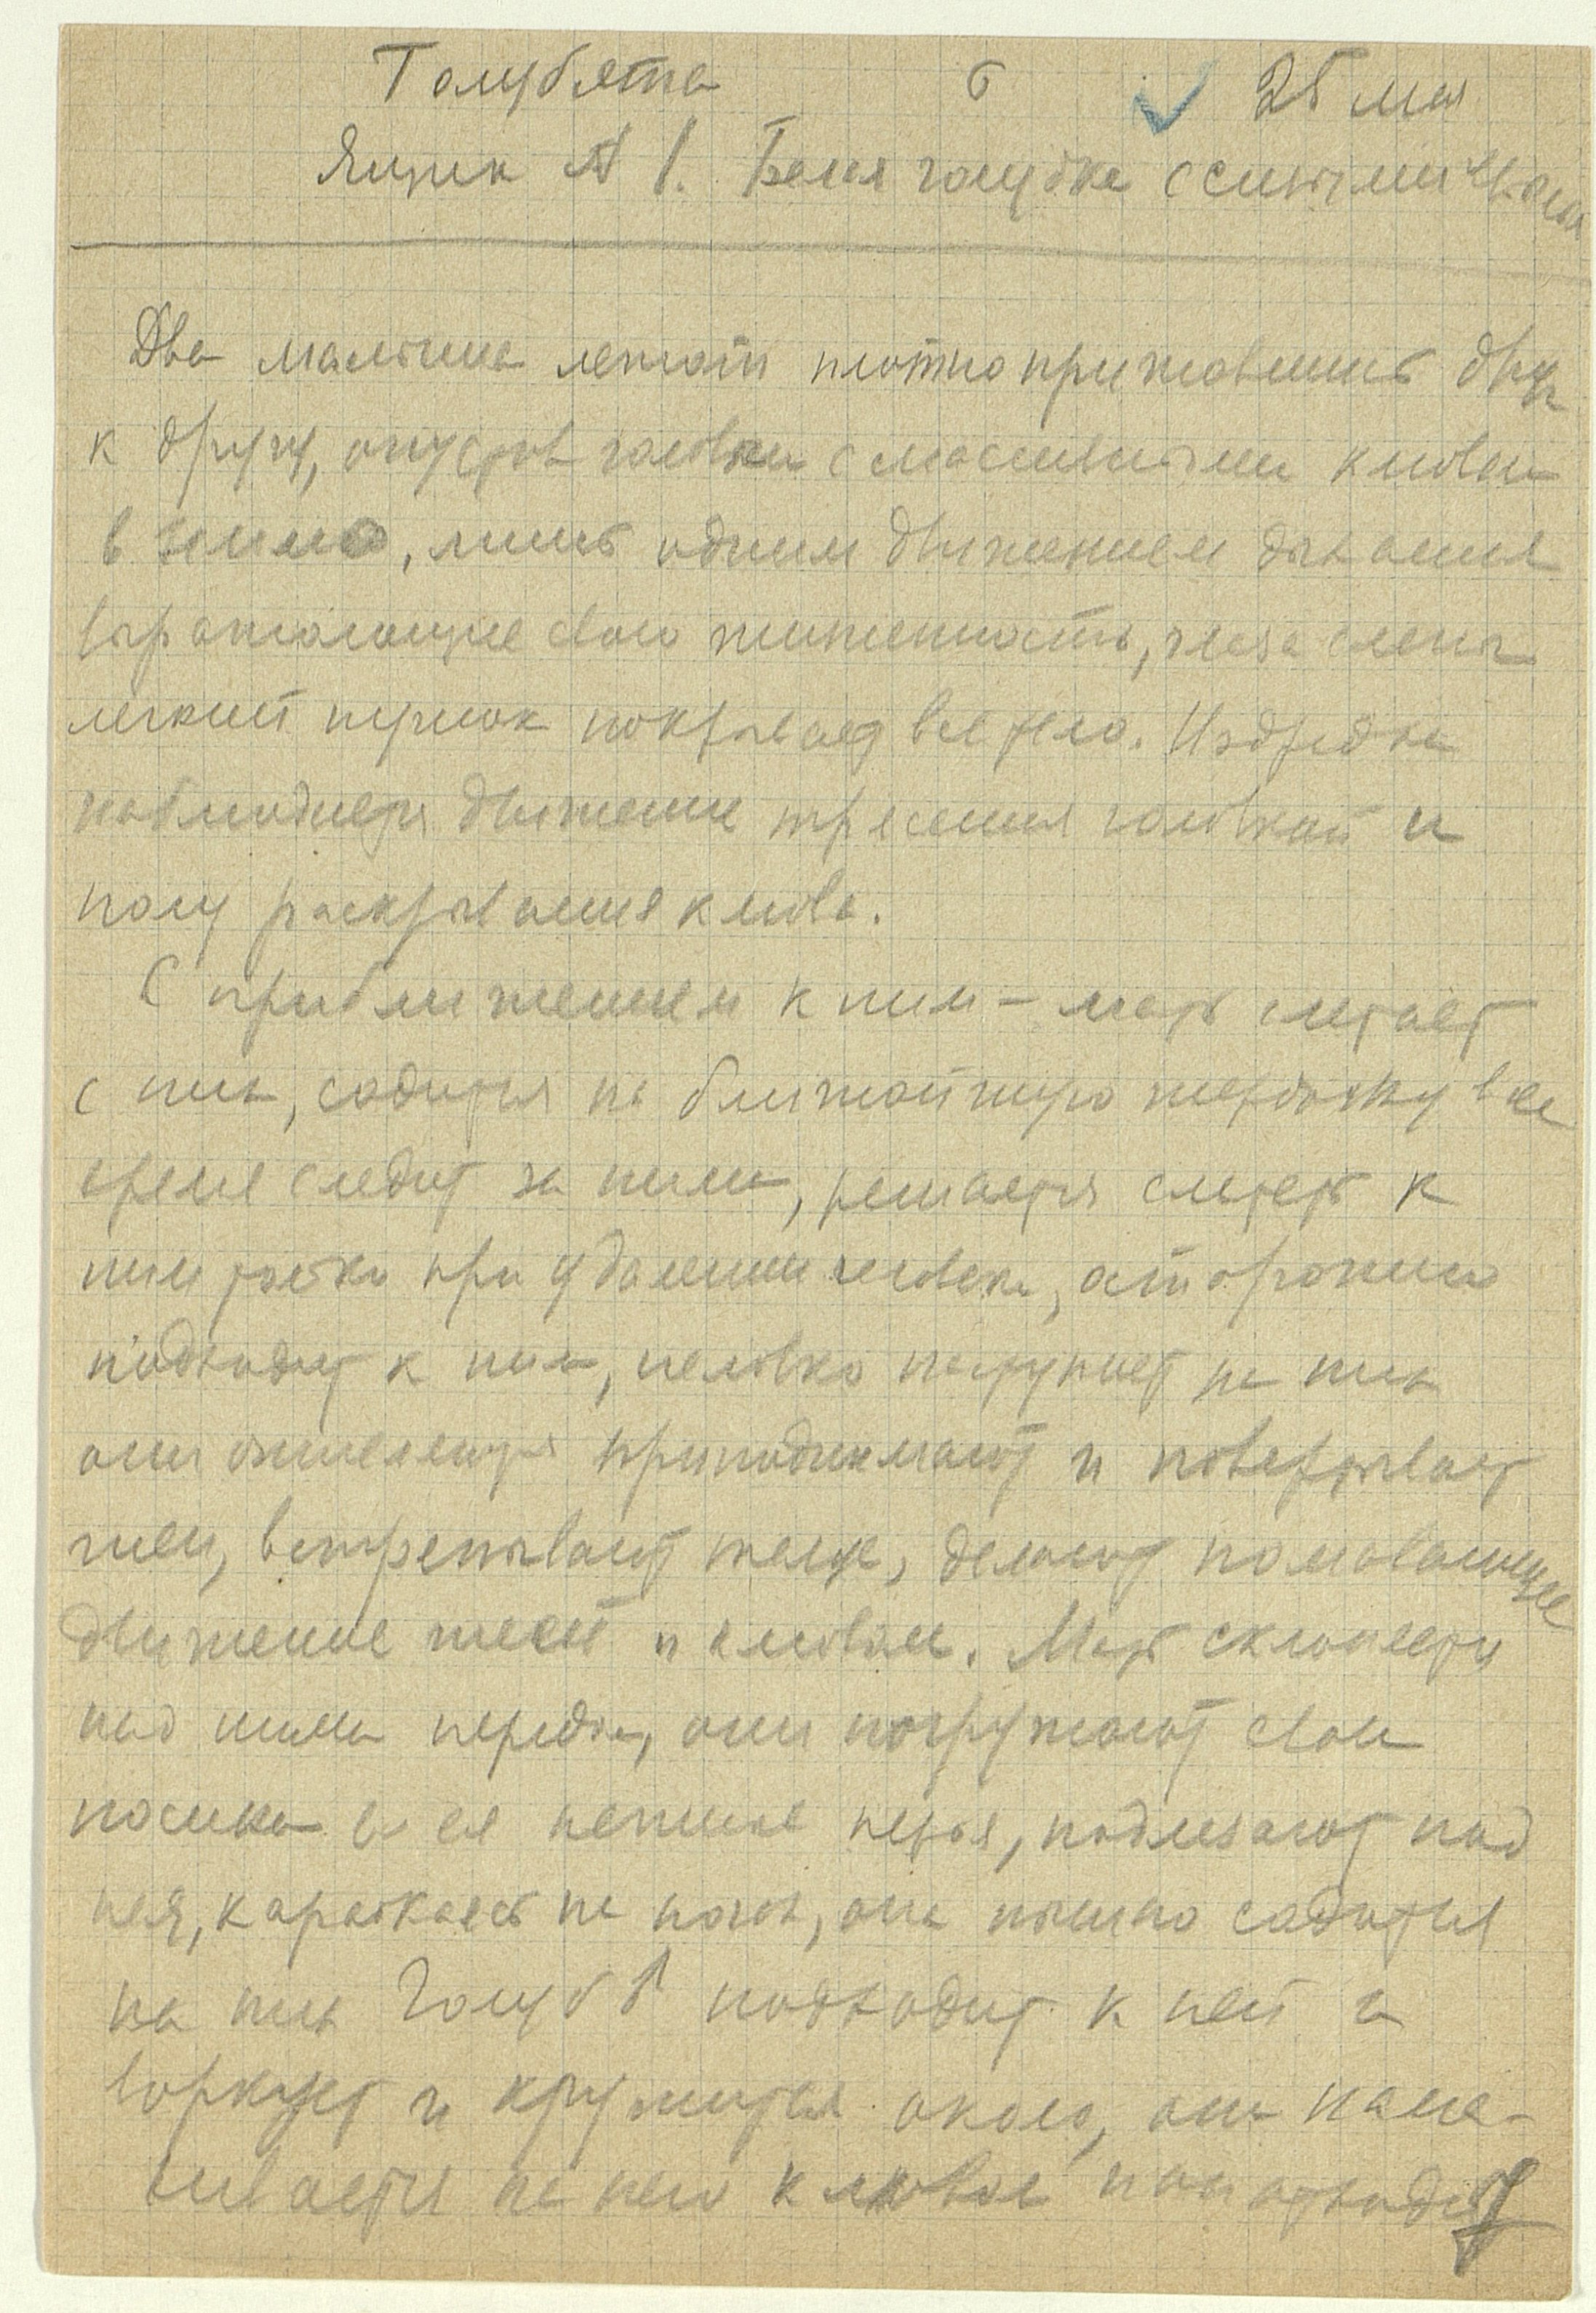 Голубята б 25 мая
Ящик № 1. Белая голубка с синими
Два мальчика лежат плотно прижавшись друг
к другу, опустив головки с массивными клювами
в землю, лишь одним движением дыхания
выражающие свою жизненность, глаза слепы
легкий пушок покрывает все тело. Изредка
наблюдается движение трясения головкой и
полу раскрывания клюва.
С приближением к ним – мать слетает
с них, садится на ближайшую жердочку все
время следит за ними, решается слететь к
ним только при удалении человека, осторожно
подходит к ним, неловко наступает на них
они оживляются приподнимают и повертывают
шеи, встрепывают тельце, делают
движение шеей и клювом. Мать склоняется
над ними передом, они погружают свои
носики в ея нежные перья, подлезают под
нея, карабкаясь на ногах, она пышно садится
на них Голубь подходит к ней и
воркует и кружится около, она наска-
кивается на него клювом и он отходит